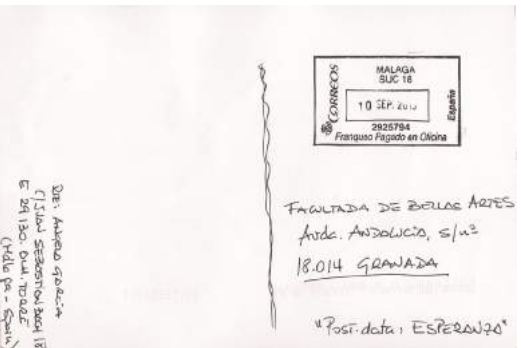 MALAGA
SUC 18
CORREOS
10 SEP. 20
España
2925794
Franqueo Pagado en Oficina
FACULTADA DE BELLAS ARTES
Avda. ANDALUCIA, s/nº
18.014 GRANADA
"Post-data: ESPERANZA"
RTE: ANGELO GARCIA
C/JUAN SEBASTIAN BACH 18
E 29130. ALH. TORRE
(Málaga - Spain)